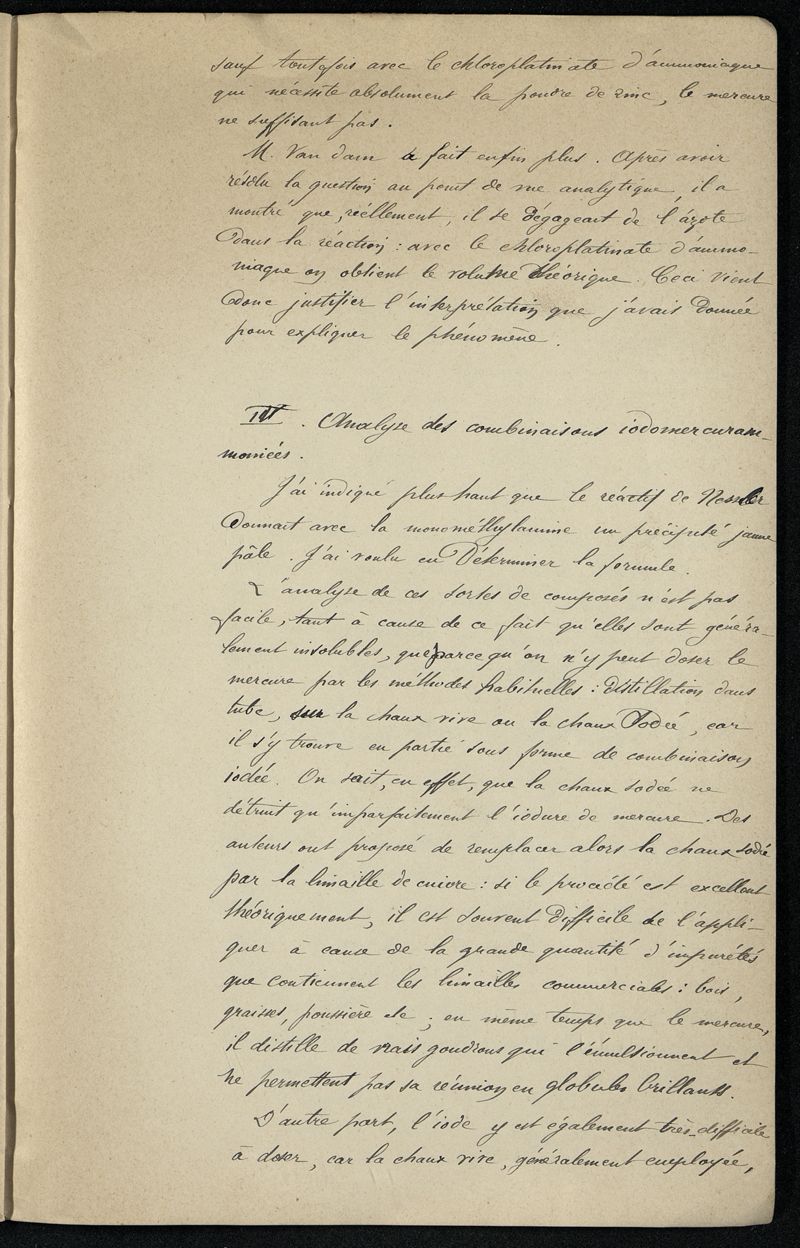 sauf toutefois avec le chloroplatinate d'ammoniaque
qui nécessite absolument la poudre de zinc, le mercure
ne suffisant pas.
M. Van dam a fait enfin plus. Après avoir
résolu la question au point de vue analytique, il a
montré que, réellement, il se dégageait de l'azote
dans la réaction : avec le chloroplatinate d'ammo-
niaque on obtient le volume théorique. Ceci vient
donc justifier l'interprétation que j'avais donnée
pour expliquer le phénomène.
IV. Analyse des combinaisons iodomercuram-
moniées.
J'ai indiqué plus haut que le réactif de Nessler
donnait avec la monométhylamine un précipité jaune
pâle. J'ai voulu en déterminer la formule.
L'analyse de ces sortes de composés n'est pas
facile, tant à cause de ce fait qu'elles sont généra-
lement insolubles, que parce qu'on n'y peut doser le
mercure par les méthodes habituelles : distillation dans
tube, sur la chaux vive ou la chaux sodée, car
il s'y trouve en partie sous forme de combinaison
iodée. On sait, en effet, que la chaux sodée ne
détruit qu'imparfaitement l'iodure de mercure. Des
auteurs ont proposé de remplacer alors la chaux sodée
par la limaille de cuivre : si le procédé est excellent
théoriquement, il est souvent difficile de l'appli-
quer à cause de la grande quantité d'impuretés
que contiennent les limailles commerciales : bois,
graisses, poussière etc ; en même temps que le mercure,
il distille de vrais goudrons qui l'émulsionnent et
ne permettent pas sa réunion en globules brillants.
D'autre part, l'iode y est également très-difficile
à doser, car la chaux vive, généralement employée,